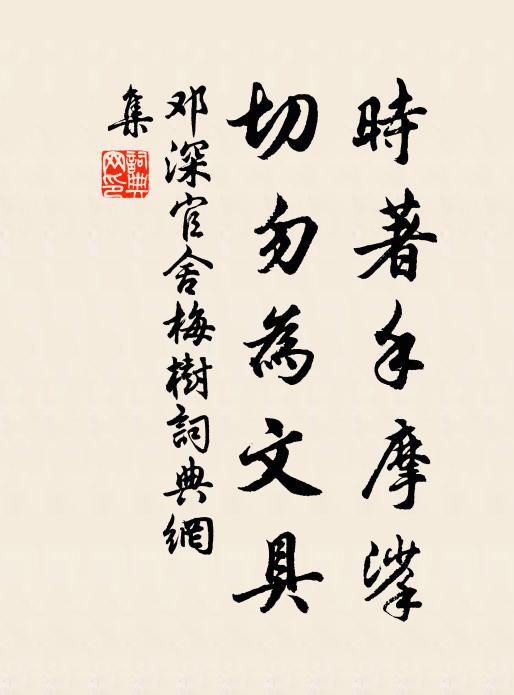 時著手摩挲
切勿為文具
邓深官舍梅樹詞典網
集
詞典网印